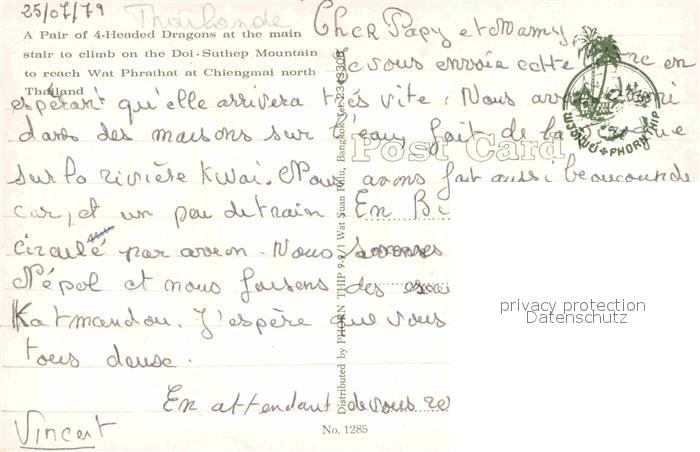 25/07/79 Thaïlande
A Pair of 4-Headed Dragons at the main
stair to climb on the Doi-Suthep Mountain
to reach Wat Phrathat at Chiengmai north
Thailand
Cher Papy et Mamy,
Je vous envoie cette en
espérant qu'elle arrivera très vite. Nous
dans des maisons sur l'eau, fait de la
sur la rivière Kwai. Nous avons fait aussi beaucoup de
car, et un peu de train. En Bi
circulé par avion. Nous sommes
Népal et nous faisons des
Katmandou. J'espère que vous
tous deux.
En attendant de vous re
Vincent
Post Card
พรทิพย์ PHORN THIP
Distributed by PHORN THIP 9-9/1 Wat Suan Plu, Bangkok Tel.
No. 1285
privacy protection
Datenschutz